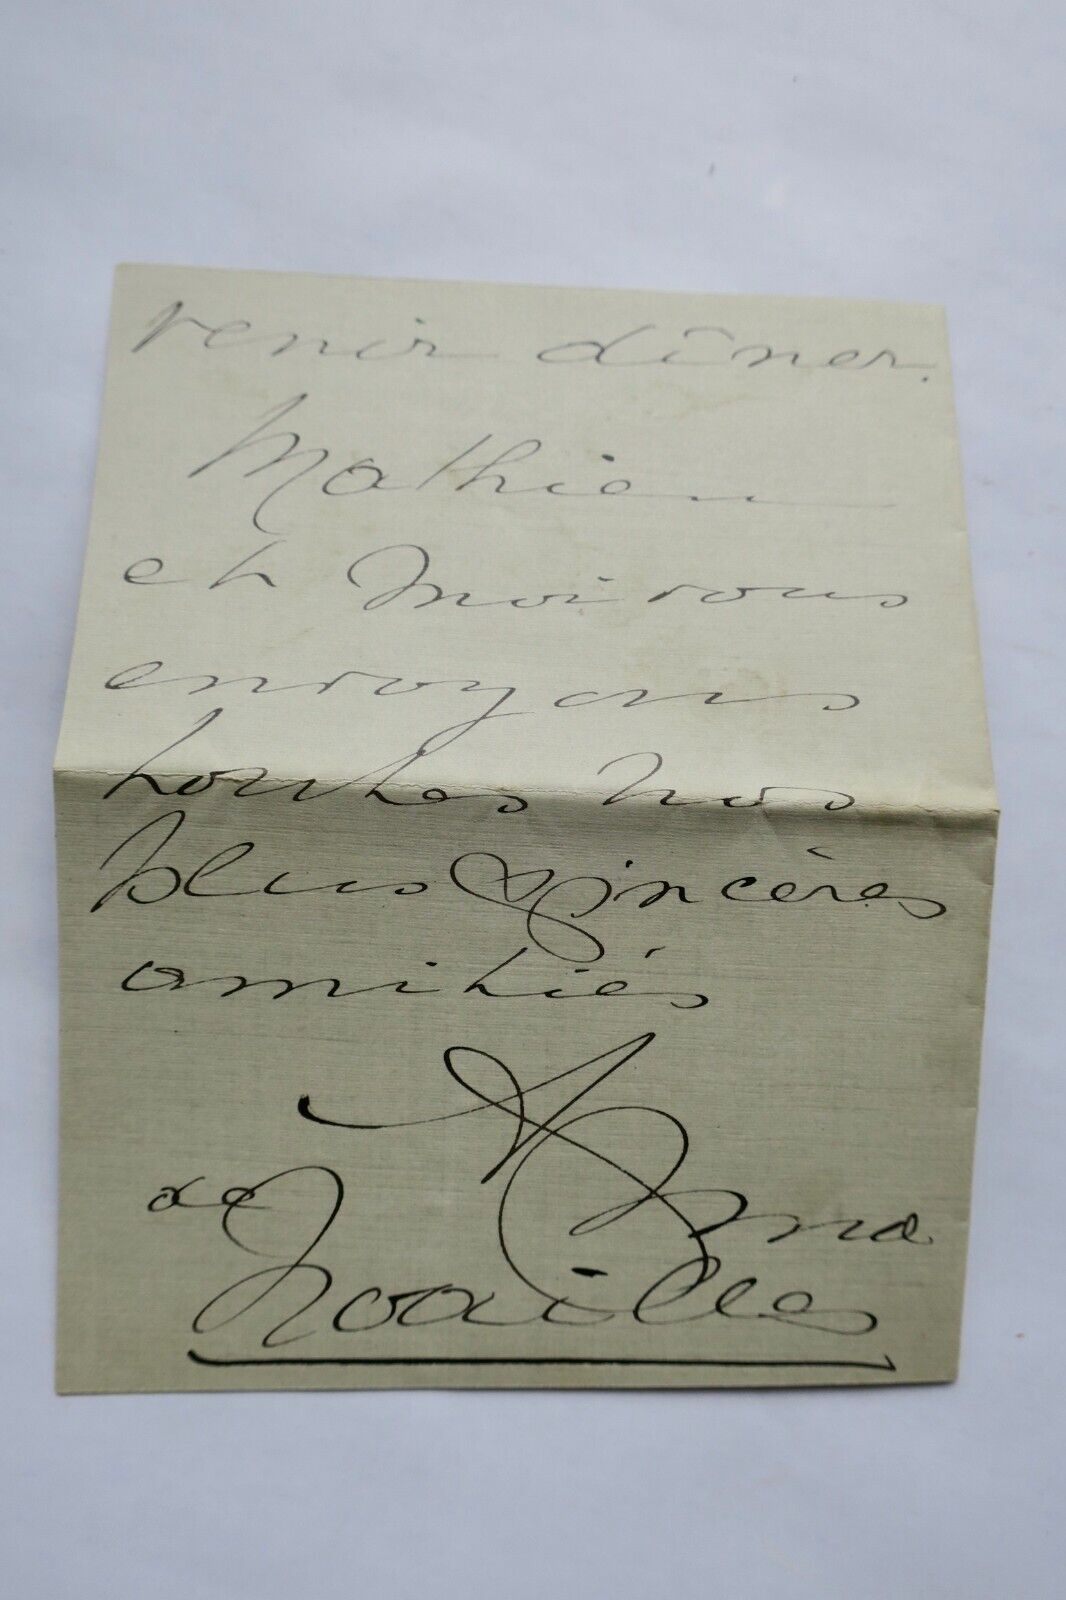 venir dîner.
Mathieu
et moi vous
envoyons
toutes nos
plus sincères
amitiés
Anna
de
Noailles